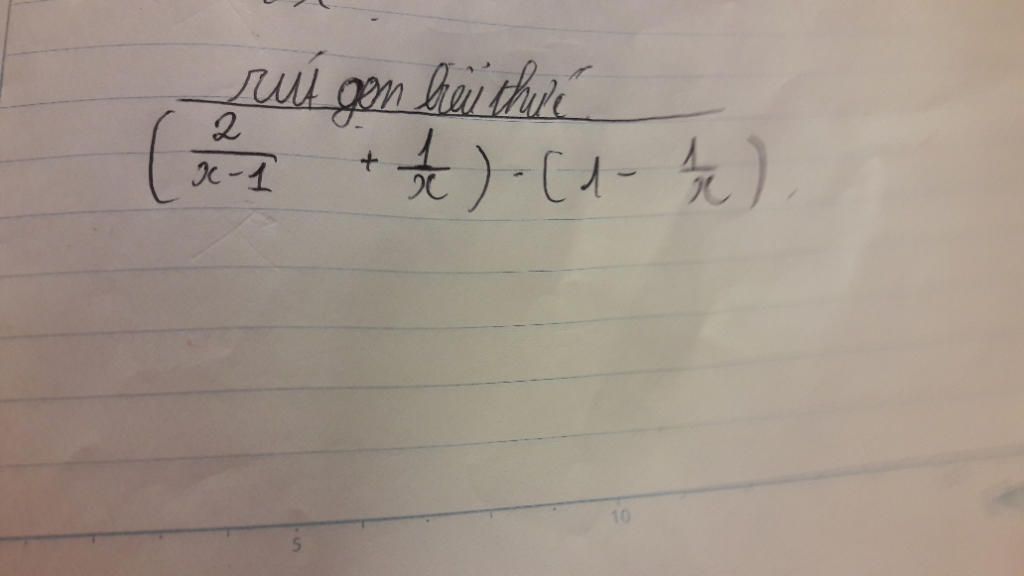 rút gọn biểu thức
( 2/(x-1) + 1/x ) . ( 1 - 1/x ) .
5 10